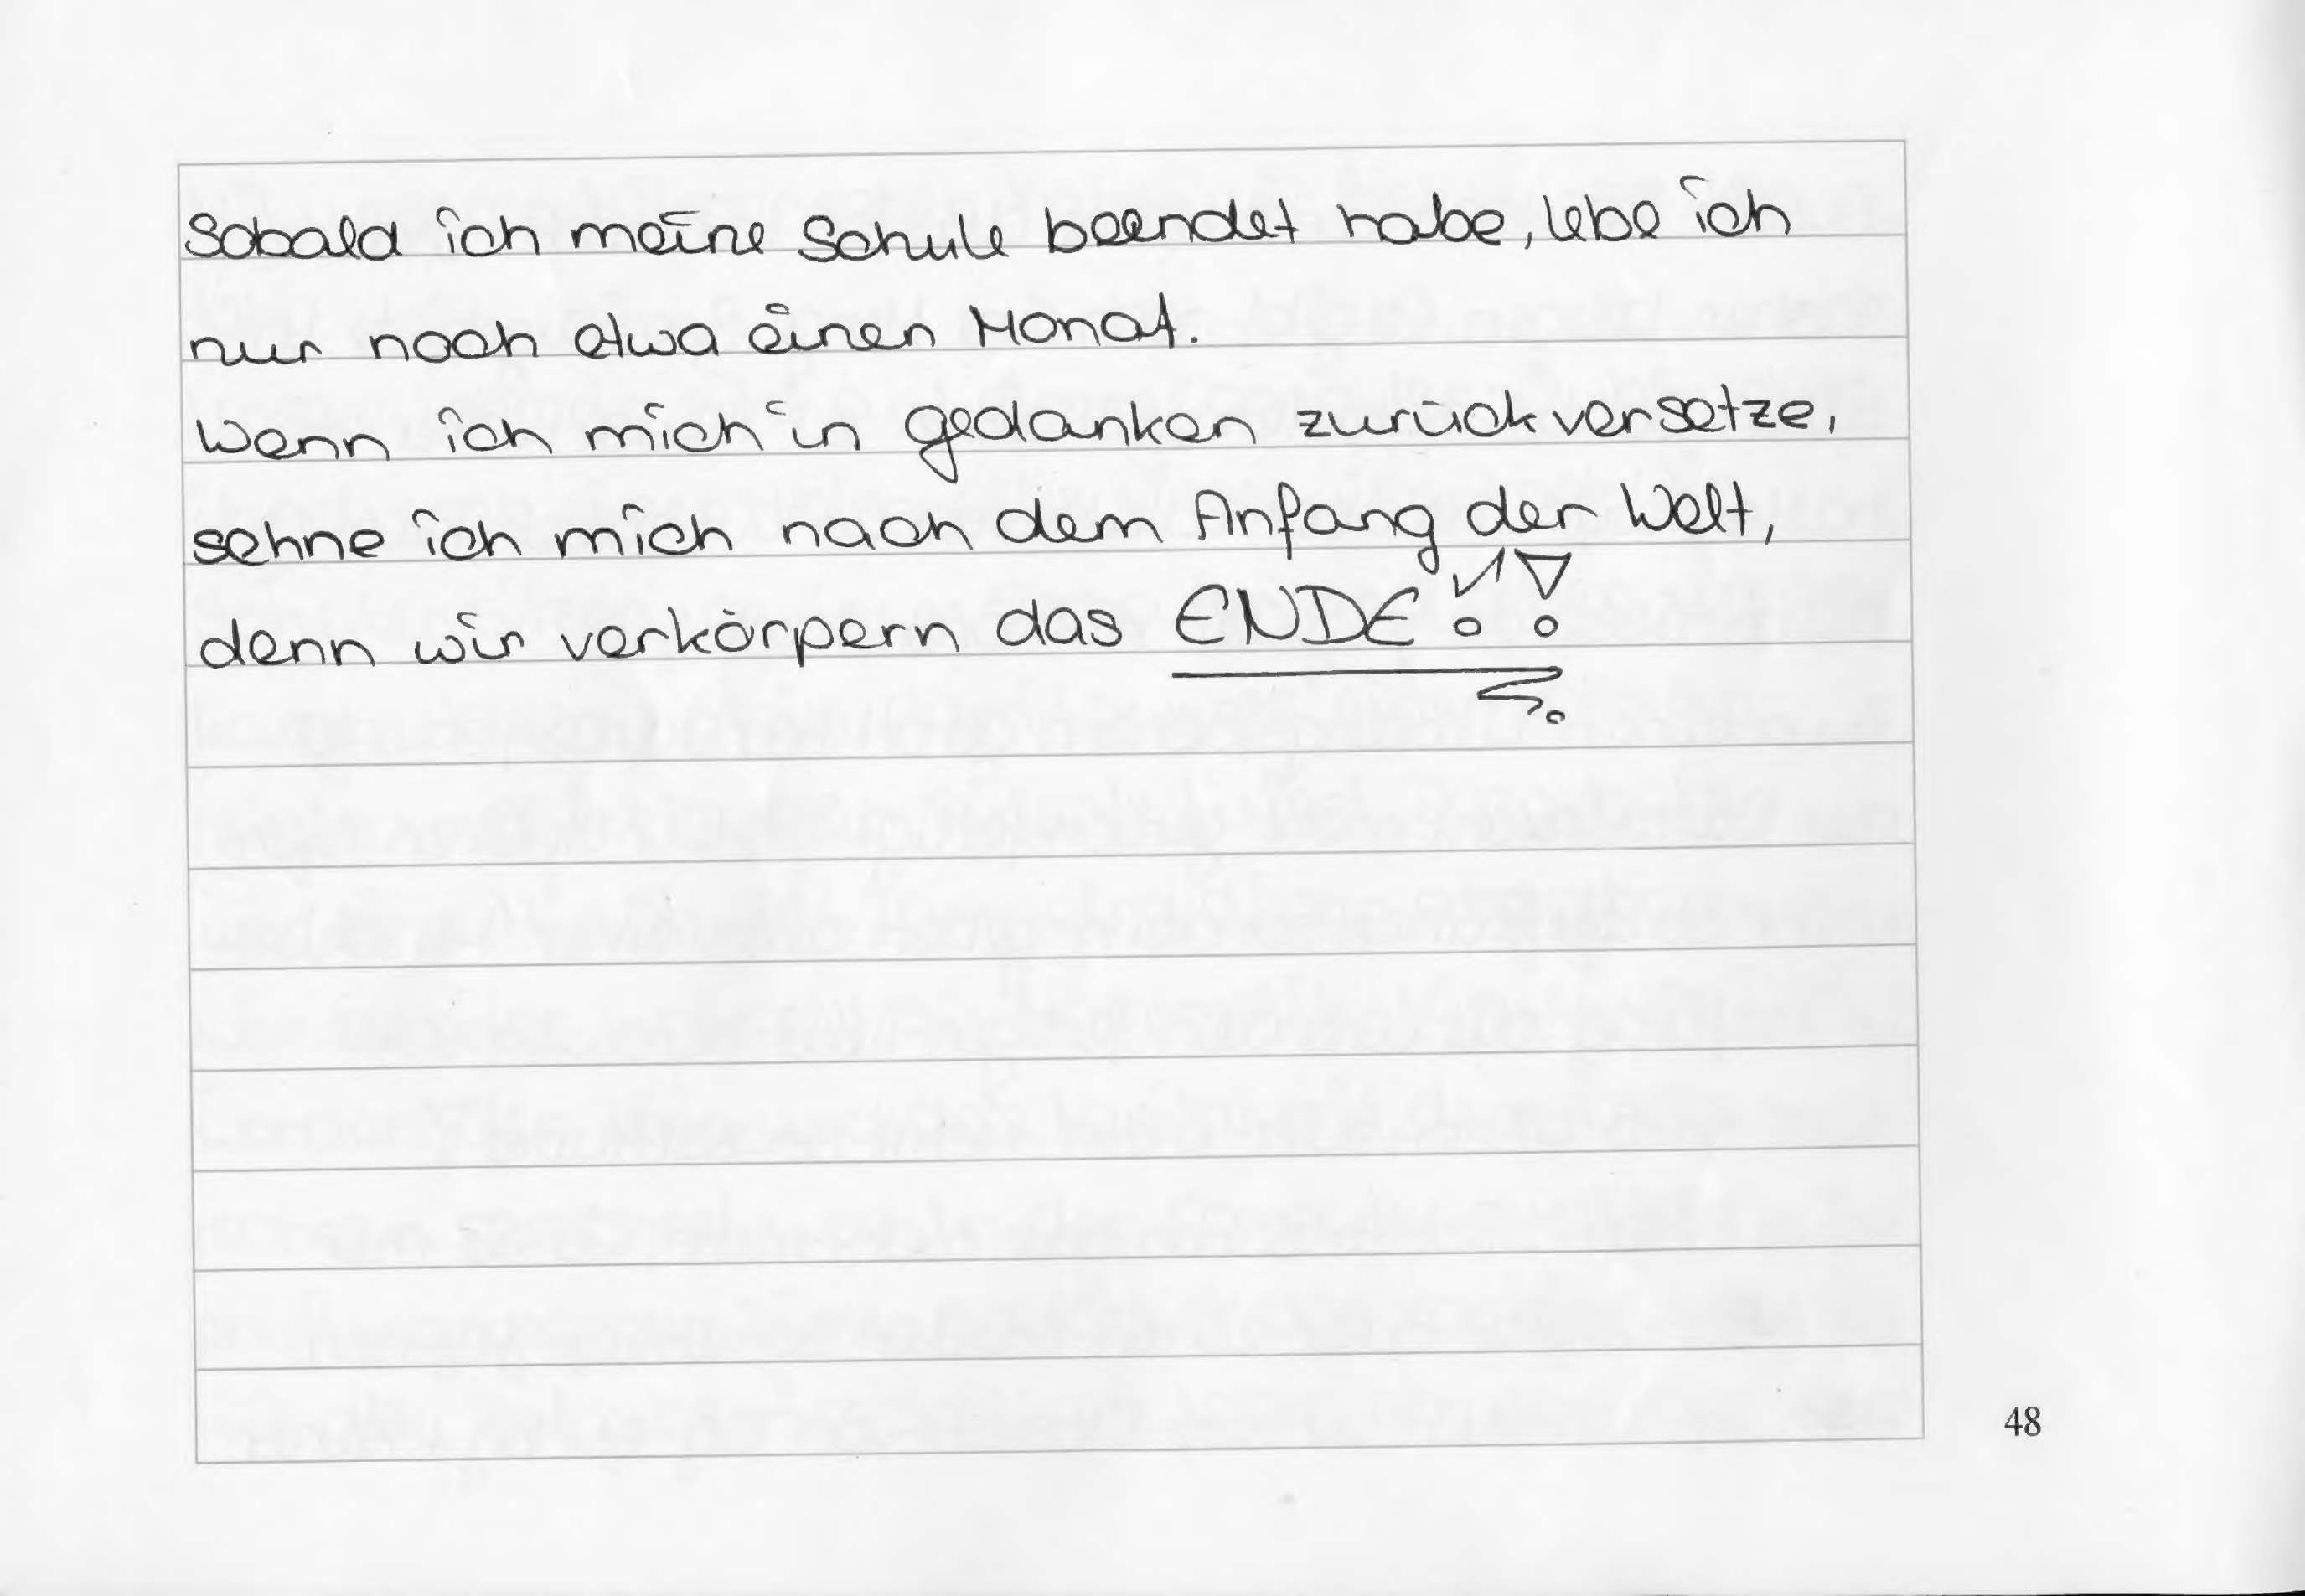 Sobald ich meine Schule beendet habe, lebe ich
nur noch etwa einen Monat.
Wenn ich mich in gedanken zurück versetze,
sehne ich mich nach dem Anfang der Welt,
denn wir verkörpern das ENDE!!
48